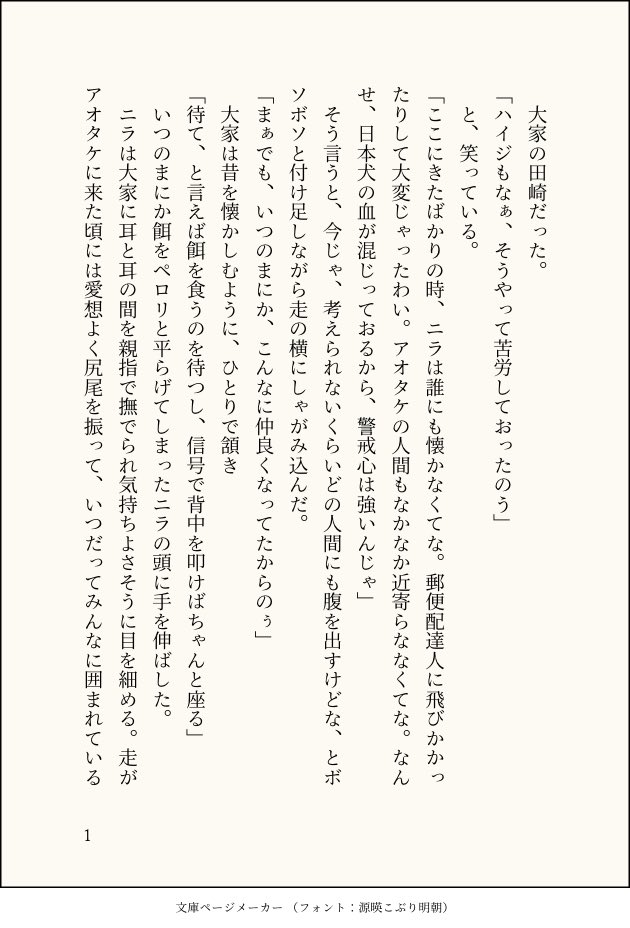 大家の田崎だった。
「ハイジもなぁ、そうやって苦労しておったのう」
　と、笑っている。
「ここにきたばかりの時、ニラは誰にも懐かなくてな。郵便配達人に飛びかかっ
たりして大変じゃったわい。アオタケの人間もなかなか近寄らななくてな。なん
せ、日本犬の血が混じっておるから、警戒心は強いんじゃ」
　そう言うと、今じゃ、考えられないくらいどの人間にも腹を出すけどな、とボ
ソボソと付け足しながら走の横にしゃがみ込んだ。
「まぁでも、いつのまにか、こんなに仲良くなってたからのぅ」
　大家は昔を懐かしむように、ひとりで頷き
「待て、と言えば餌を食うのを待つし、信号で背中を叩けばちゃんと座る」
　いつのまにか餌をペロリと平らげてしまったニラの頭に手を伸ばした。
　ニラは大家に耳と耳の間を親指で撫でられ気持ちよさそうに目を細める。走が
アオタケに来た頃には愛想よく尻尾を振って、いつだってみんなに囲まれている
1
文庫ページメーカー （フォント：源暎こぶり明朝）